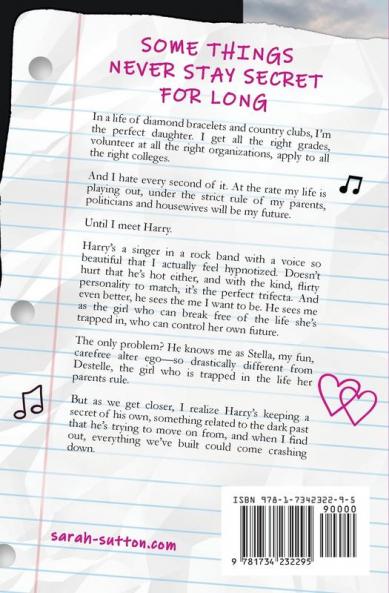 SOME THINGS
NEVER STAY SECRET
FOR LONG
In a life of diamond bracelets and country clubs, I'm
the perfect daughter. I get all the right grades,
volunteer at all the right organizations, apply to all
the right colleges.
And I hate every second of it. At the rate my life is
playing out, under the strict rule of my parents,
politicians and housewives will be my future.
Until I meet Harry.
Harry's a singer in a rock band with a voice so
beautiful that I actually feel hypnotized. Doesn't
hurt that he's hot either, and with the kind, flirty
personality to match, it's the perfect trifecta. And
even better, he sees the me I want to be. He sees me
as the girl who can break free of the life she's
trapped in, who can control her own future.
The only problem? He knows me as Stella, my fun,
carefree alter ego—so drastically different from
Destelle, the girl who is trapped in the life her
parents rule.
But as we get closer, I realize Harry's keeping a
secret of his own, something related to the dark past
that he's trying to move on from, and when I find
out, everything we've built could come crashing
down.
sarah-sutton.com
ISBN 978-1-7342322-9-5
90000
9 781734 232295